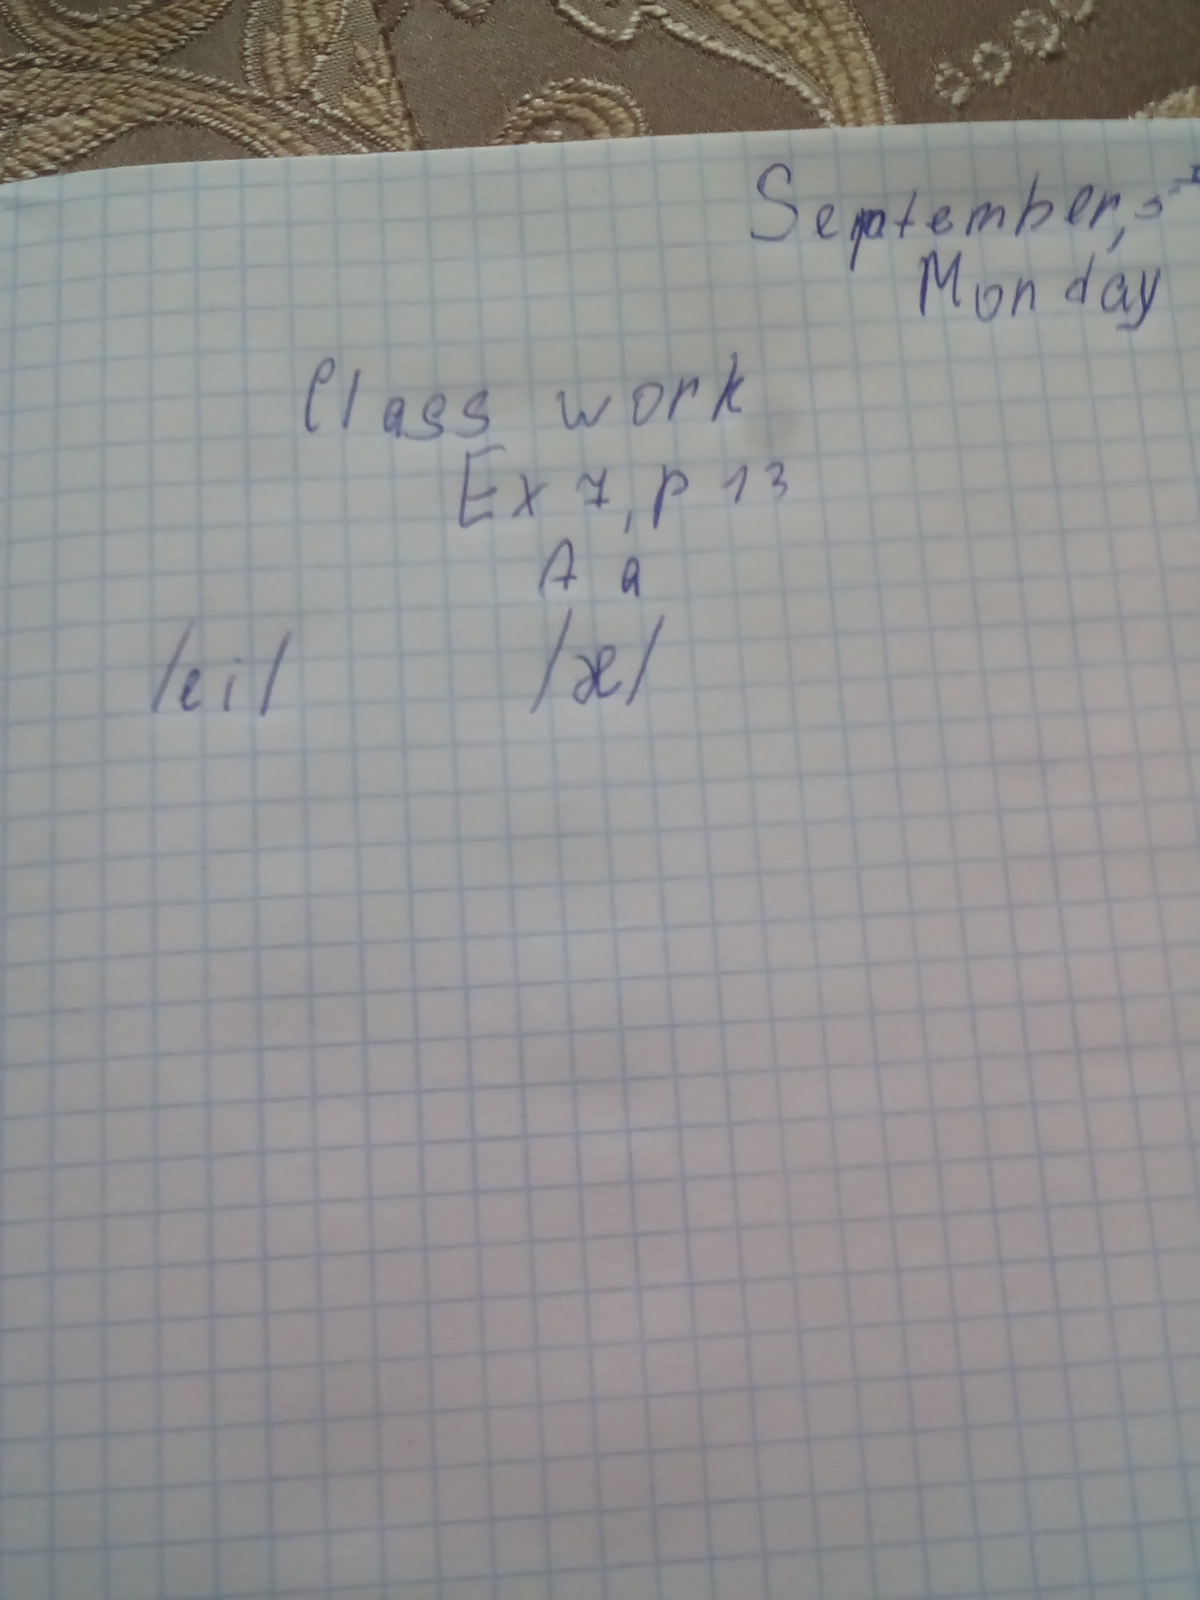 September,
Monday
Class work
Ex 7, p 13
A a
/ei/ /æ/